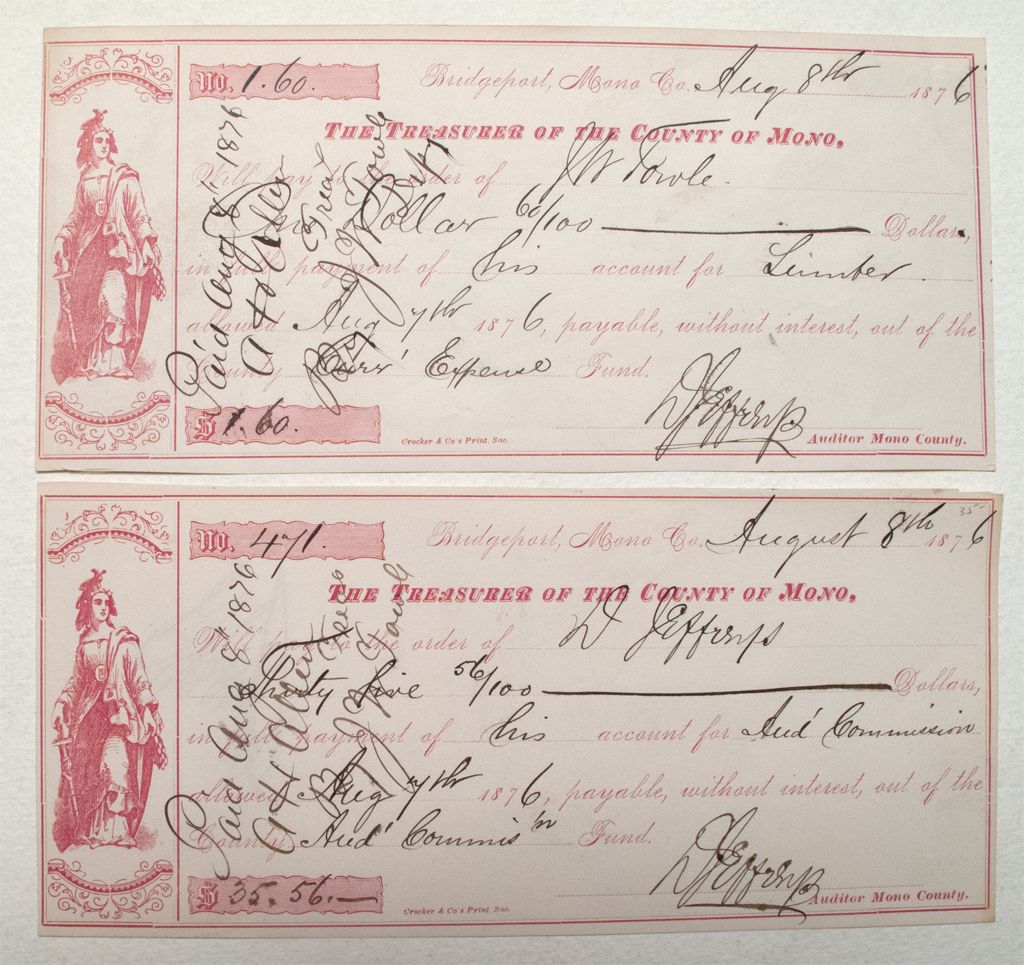 No. 1.60.
Bridgeport, Mono Co. Aug 8th 1876
THE TREASURER OF THE COUNTY OF MONO,
Will pay to the order of J W Towle.
One Dollar 60/100 Dollars,
in full payment of his account for Lumber.
allowed Aug 7th 1876, payable, without interest, out of the
County Curr' Expense Fund.
$ 1.60.
Crocker & Co's Print, Sac.
D Jeffreys
Auditor Mono County.
Paid Aug 8" 1876
Treas
By J W Towle
Dept
No. 471.
Bridgeport, Mono Co. August 8th 1876
35-
THE TREASURER OF THE COUNTY OF MONO,
Will pay to the order of D Jeffreys
Thirty five 56/100 Dollars,
in full payment of his account for Aud' Commission
allowed Aug 7th 1876, payable, without interest, out of the
County, Aud' Commis'n Fund.
$ 35.56.
Crocker & Co's Print, Sac.
D Jeffreys
Auditor Mono County.
Paid Aug 8" 1876
Treas
By J W Towle